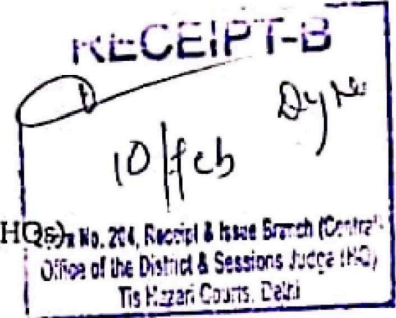 RECEIPT-B
10/feb
HQs)
No. 204, Receipt & Issue Branch (Central)
Office of the District & Sessions Judge (HQ)
Tis Hazari Courts, Delhi